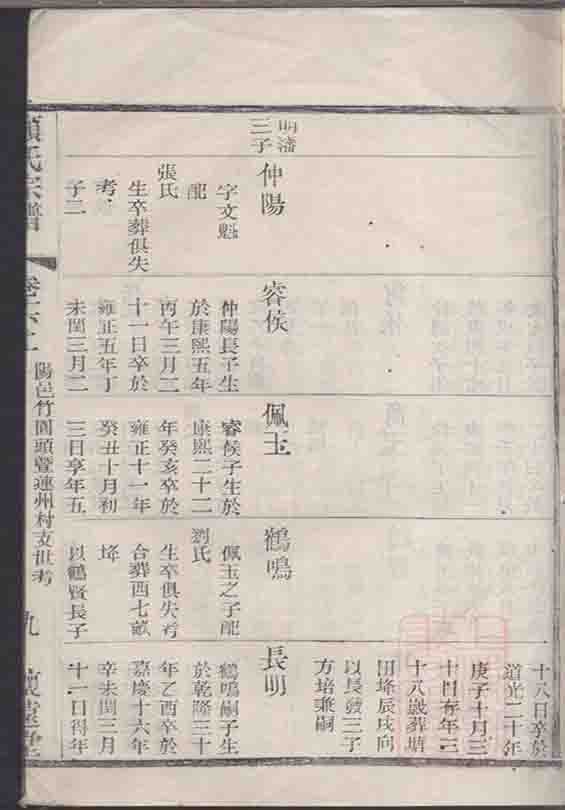 十八日卒於
道光二十年
庚子十月三
十八歲葬塘
以長發三子
方培兼嗣
三子
仲陽
字文魁
配
張氏
生卒葬俱失
考
子二
睿侯
仲陽長子生
於康熙五年
丙午三月二
十一日卒於
雍正五年丁
未閏三月二
佩玉
睿侯子生於
康熙二十二
年癸亥卒於
雍正十一年
癸丑十月初
三日享年五
鶴鳴
佩玉之子配
劉氏
生卒俱失考
合葬西七畝
垰
以鶴賢長子
長明
鶴鳴嗣子生
於乾隆三十
年乙酉卒於
嘉慶十六年
辛未閏三月
十一日得年
氏宗譜
陽邑竹園頭暨蓮州村支世考
九